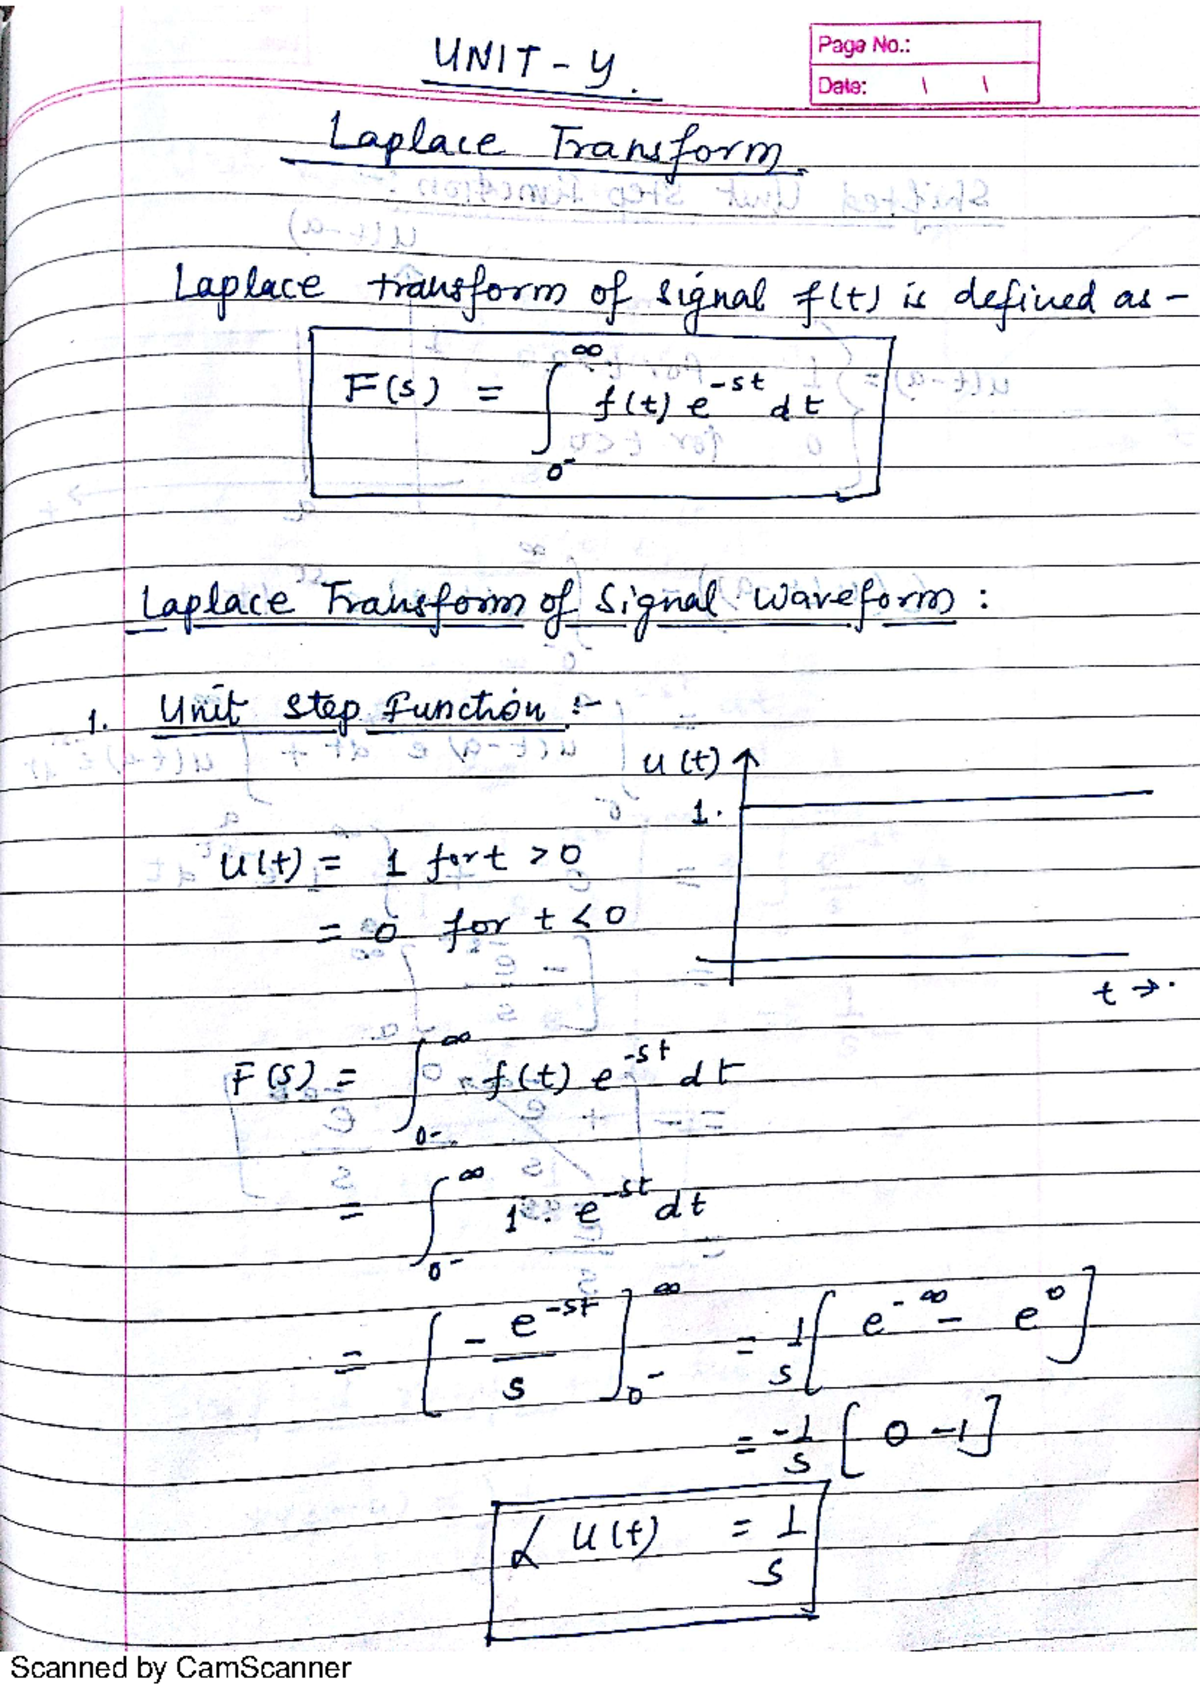 UNIT - Y.
Page No.:
Date: \ \
Laplace Transform.
Laplace transform of signal f(t) is defined as -
F(s) = ∫₀-^∞ f(t) e^-st dt
Laplace Transform of Signal Waveform :
1. Unit Step Function :-
u(t)
1.
U(t) = 1 for t > 0
= 0 for t < 0
t →.
F(s) = ∫₀-^∞ f(t) e^-st dt
= ∫₀-^∞ 1. e^-st dt
= [ - e^-st / s ]₀-^∞ = 1/s [ e^-∞ - e^0 ]
= -1/s [ 0 - 1 ]
L U(t) = 1/s
Scanned by CamScanner